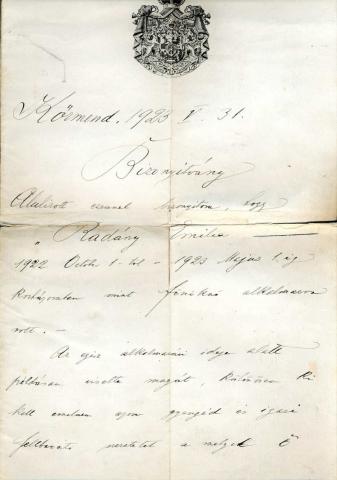 Körmend. 1923 V. 31.
Bizonyitvány
Alulirott ezennel bizonyitom, hogy
Radány Emilia
1922 Octob. 1-től – 1923 Május 1. ig
mint alkalmazva
volt. –
Az egész alkalmazási ideje alatt
példásan viselte magát, különösen ki
kell emelnem azon gyengéd és igazi
szeretetet a melyet Ő